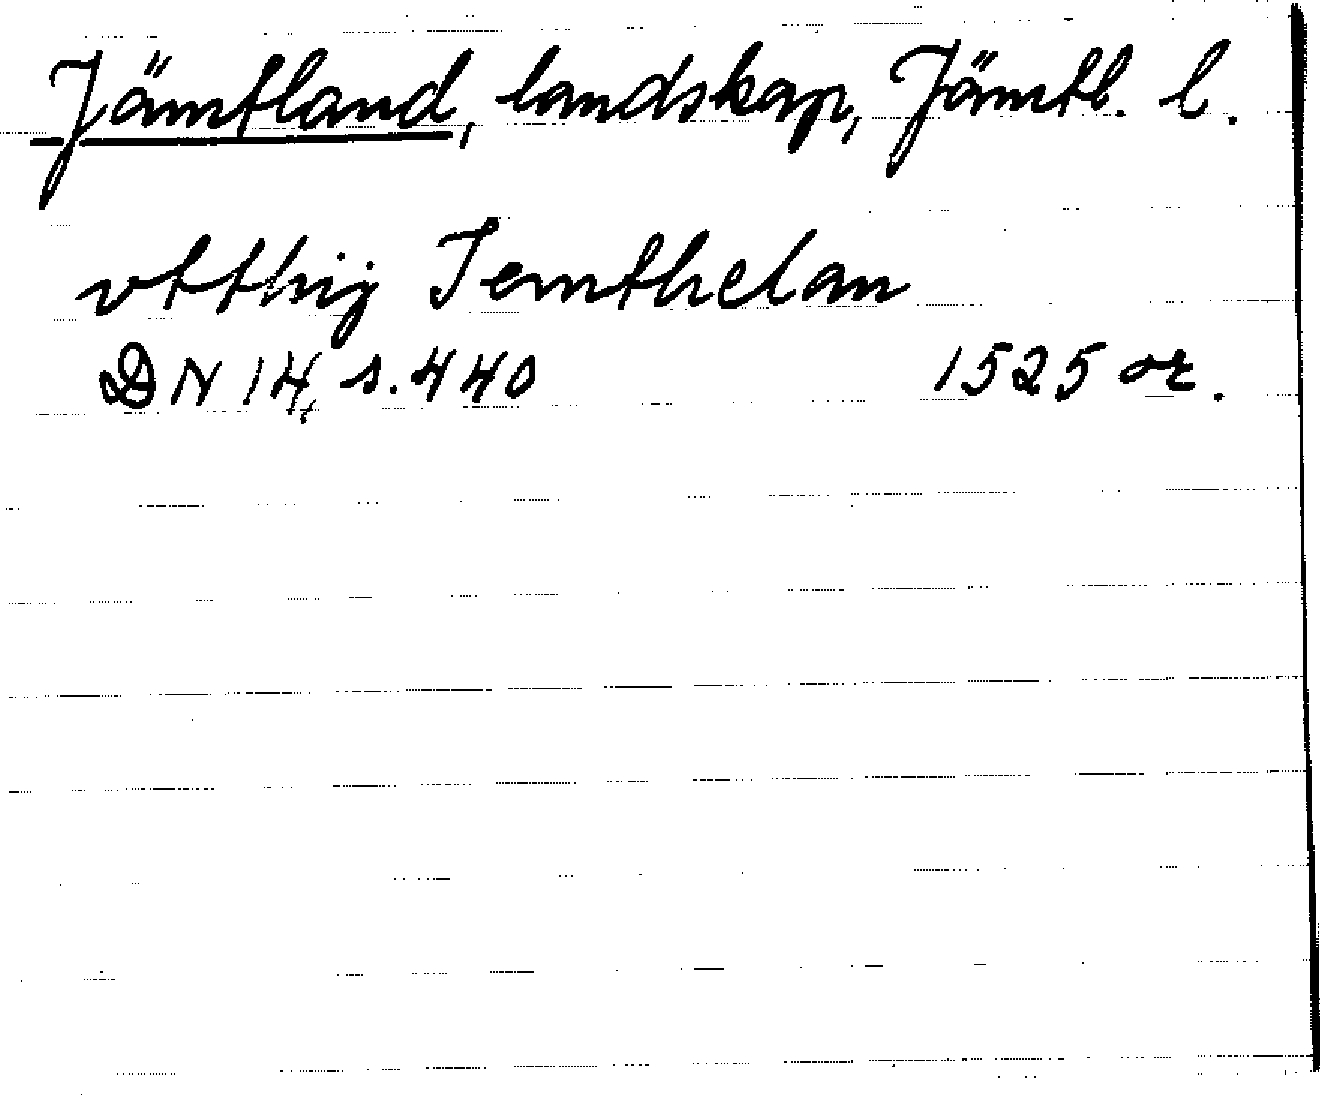 Jämtland, landskap, Jämtl. l.
vtthij Jemthelan
DN 14, s. 440 1525 or.